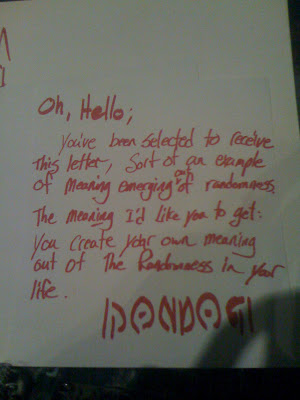 Oh, Hello;
You've been selected to receive
This letter, Sort of an example
of meaning emerging out of randomness.
The meaning I'd like you to get:
you create your own meaning
out of The Randomness in your
life.